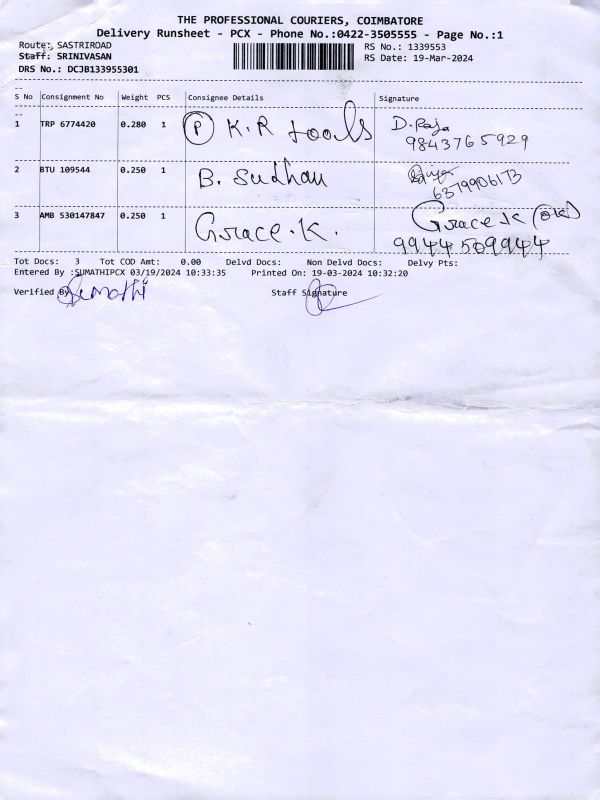 THE PROFESSIONAL COURIERS, COIMBATORE
Delivery Runsheet - PCX - Phone No.:0422-3505555 - Page No.:1
Route:, SASTRIROAD
RS No.: 1339553
Staff: SRINIVASAN
RS Date: 19-Mar-2024
DRS No.: DCJB133955301
S No Consignment No Weight PCS Consignee Details Signature
1 TRP 6774420 0.280 1 P K.R tools D. Raja
9843765929
2 BTU 109544 0.250 1 B. Sudhan
6379906173
3 AMB 530147847 0.250 1 Grace.K. Grace K
9944569944
Tot Docs: 3 Tot COD Amt: 0.00 Delvd Docs: Non Delvd Docs: Delvy Pts:
Entered By :SUMATHIPCX 03/19/2024 10:33:35 Printed On: 19-03-2024 10:32:20
Verified By Sumathi Staff Signature